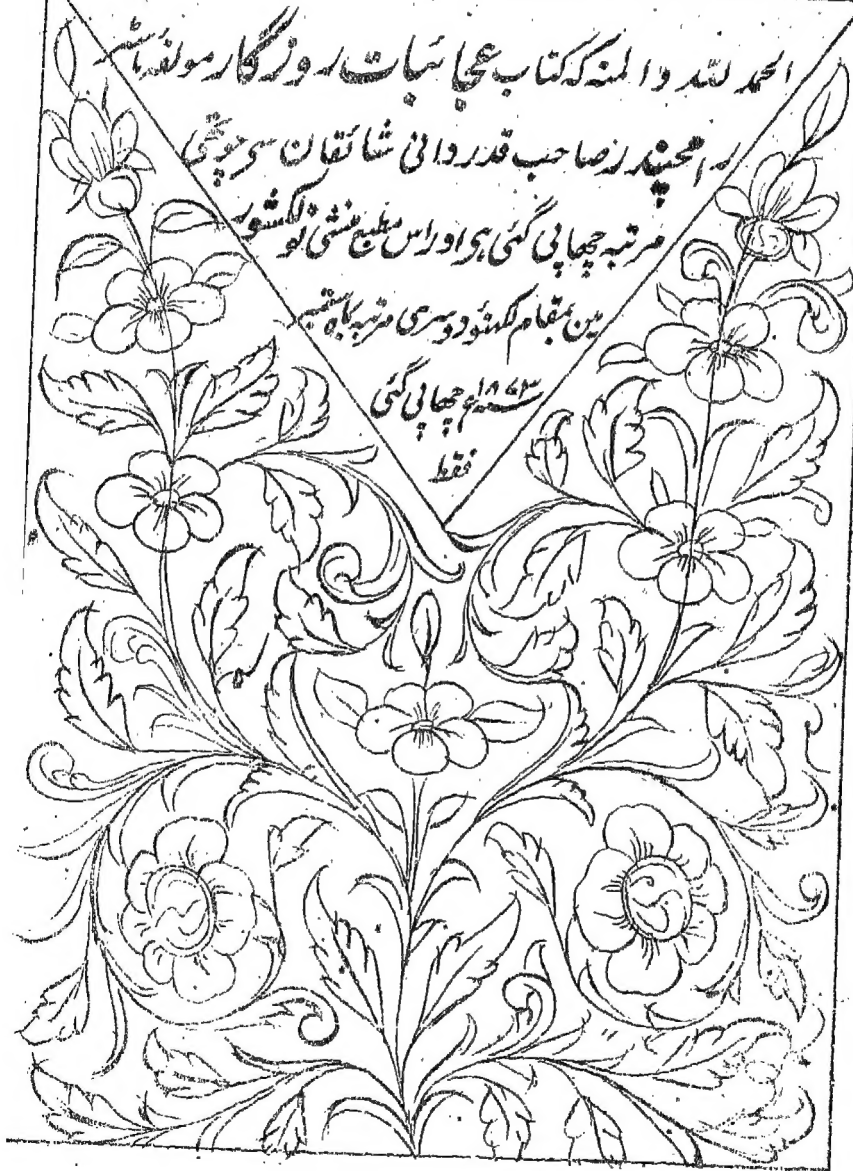 الحمد للہ والمنہ کہ کتاب عجائبات روزگار مولفہ ماسٹر
رامچندر صاحب قدردانی شائقان سی چوتھی
مرتبہ چھاپی گئی ہی اور اس مطبع منشی نولکشور
مین بمقام لکہنؤ دوسری مرتبہ بماہ ستمبر
۱۸۷۳ء چھاپی گئی
فقط